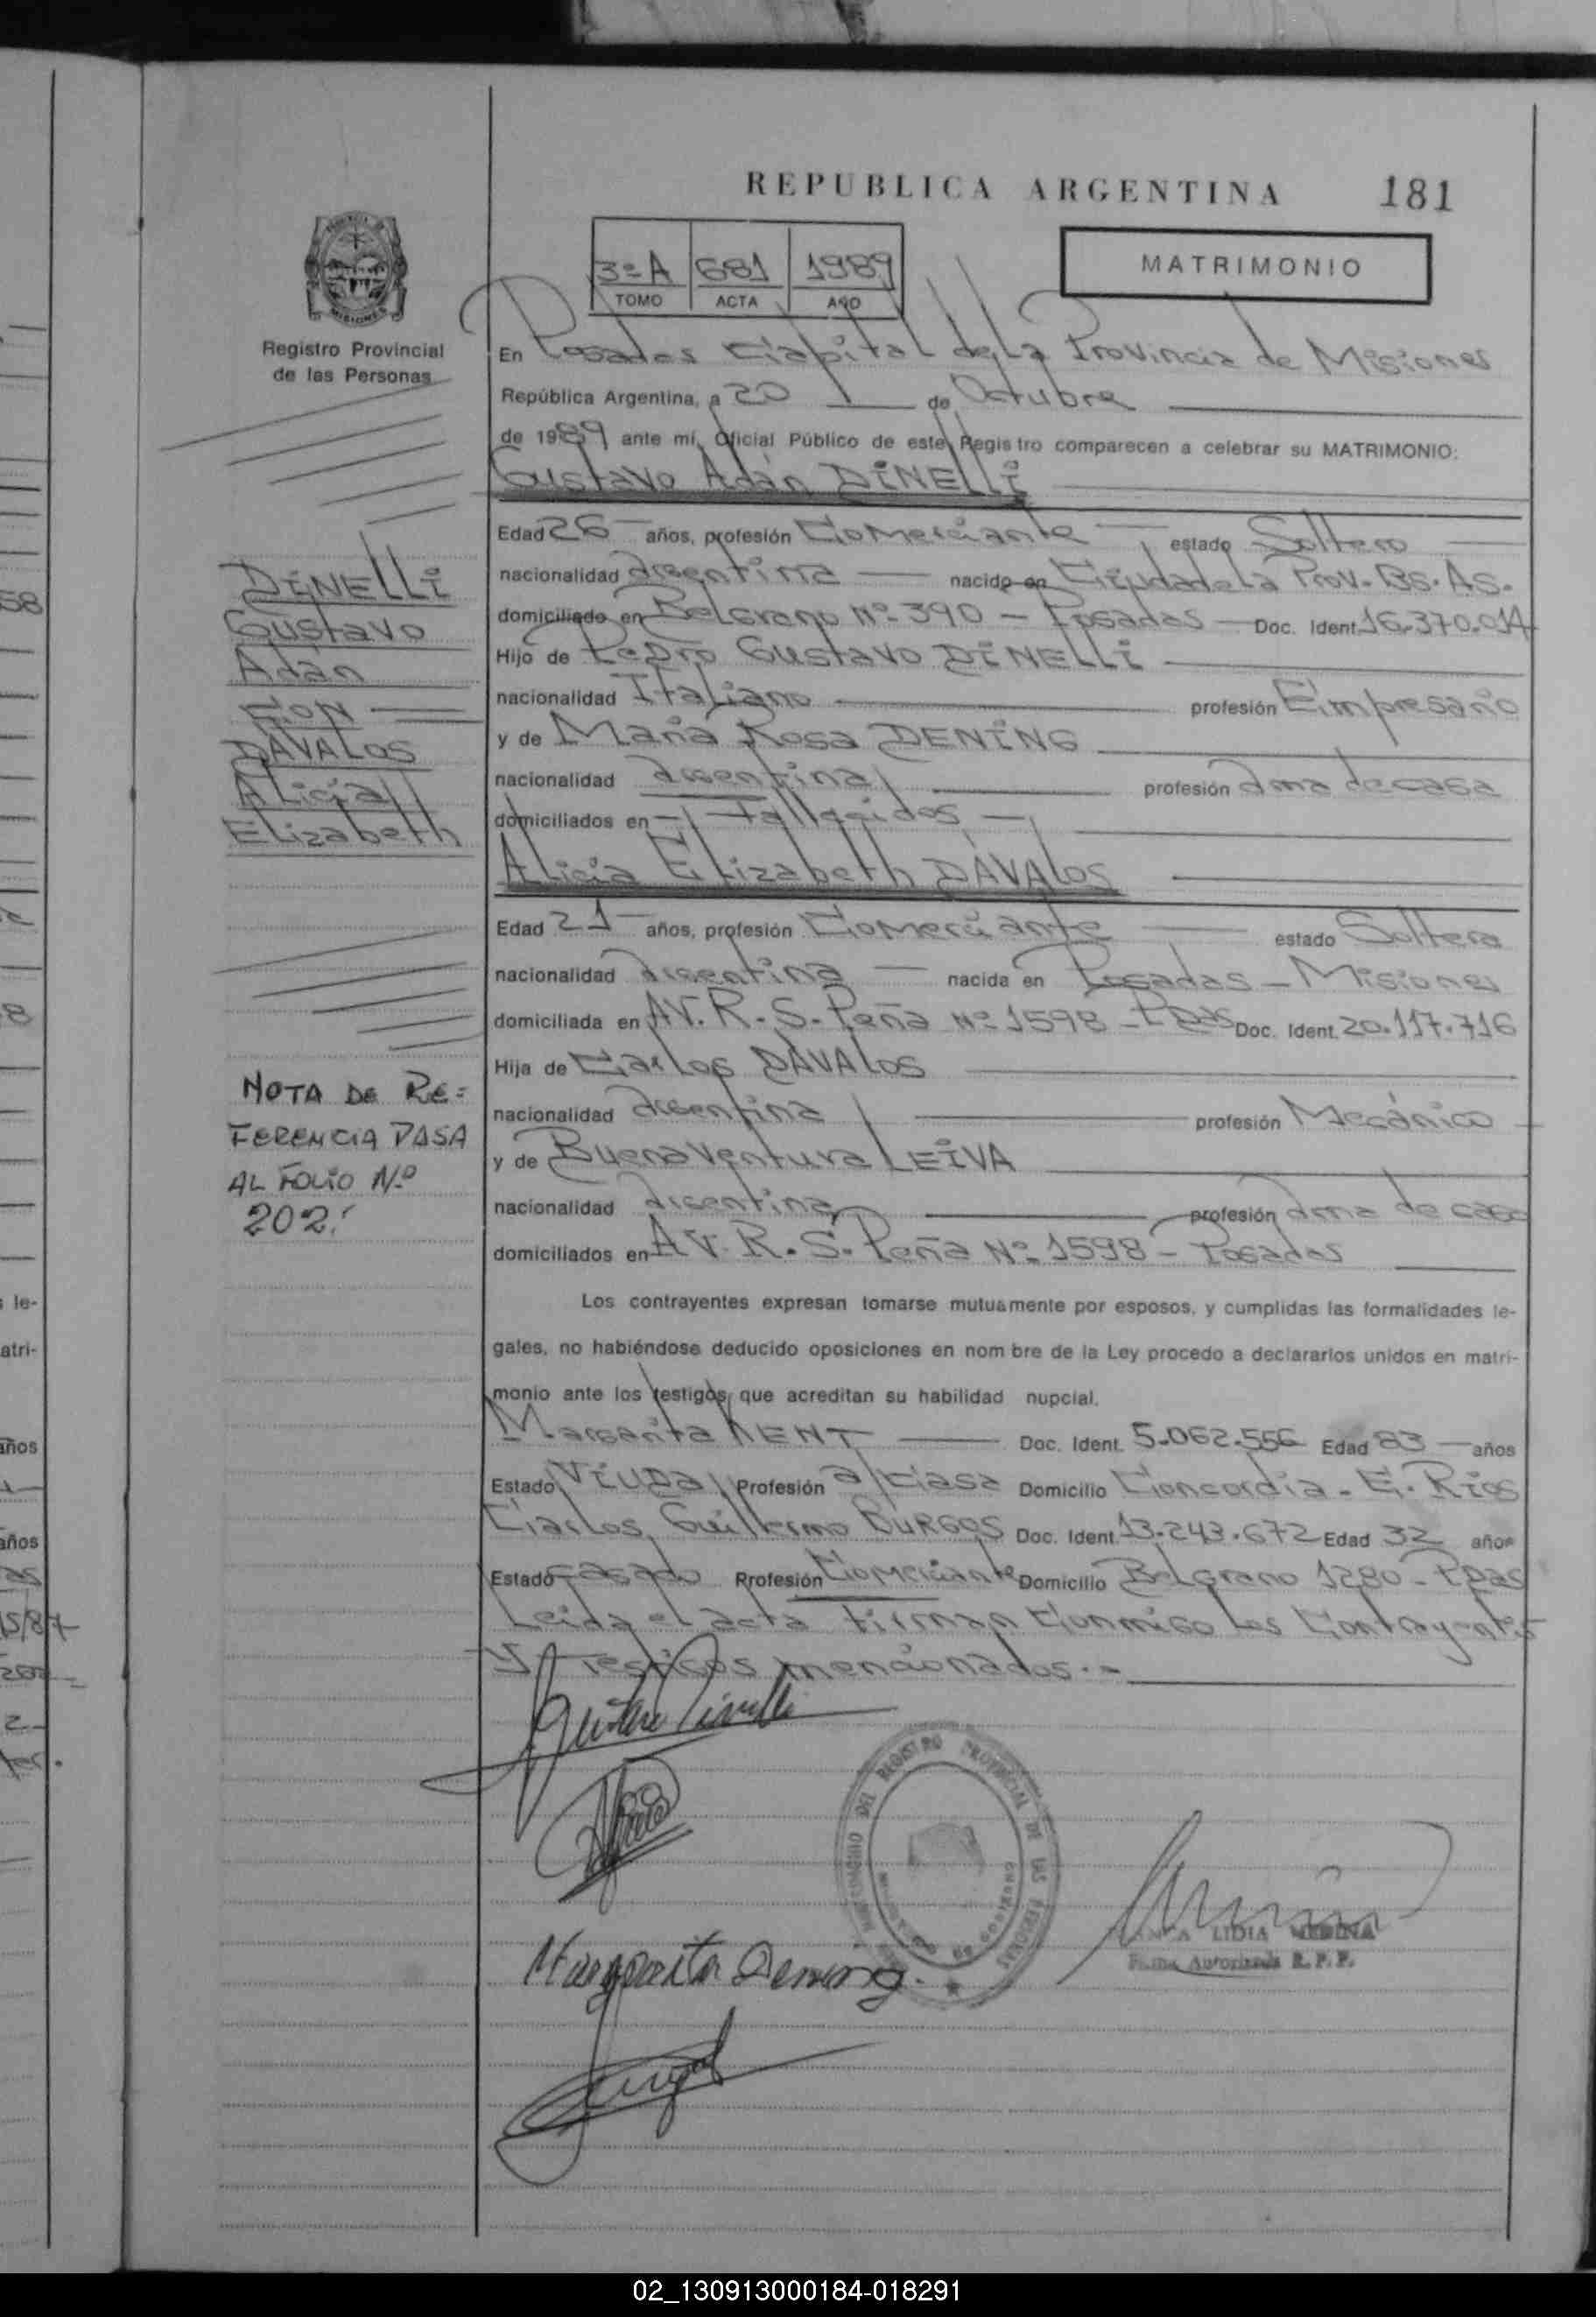 REPUBLICA ARGENTINA 181
3º A 681 1989
TOMO ACTA AÑO
MATRIMONIO
Registro Provincial
de las Personas
En Posadas Capital de la Provincia de Misiones
República Argentina, a 20 de Octubre
de 1989 ante mí, Oficial Público de este Registro comparecen a celebrar su MATRIMONIO:
Gustavo Adán DINELLI
Edad 26 años, profesión Comerciante estado Soltero
nacionalidad argentina nacido en Ciudadela Prov. Bs. As.
domiciliado en Belgrano Nº 390 - Posadas Doc. Ident. 16.370.014
Hijo de Pedro Gustavo DINELLI
nacionalidad Italiano profesión Empresario
y de María Rosa DENING
nacionalidad argentina profesión ama de casa
domiciliados en - Fallecidos -
Alicia Elizabeth DÁVALOS
Edad 21 años, profesión Comerciante estado Soltera
nacionalidad argentina nacida en Posadas - Misiones
domiciliada en AV. R. S. Peña Nº 1598 - Pdas Doc. Ident. 20.117.716
Hija de Carlos DÁVALOS
nacionalidad argentina profesión Mecánico
y de Buenaventura LEIVA
nacionalidad argentina profesión ama de casa
domiciliados en AV. R. S. Peña Nº 1598 - Posadas
Los contrayentes expresan tomarse mutuamente por esposos, y cumplidas las formalidades le-
gales, no habiéndose deducido oposiciones en nom bre de la Ley procedo a declararlos unidos en matri-
monio ante los testigos que acreditan su habilidad nupcial.
Margarita KENT Doc. Ident. 5.062.556 Edad 83 años
Estado Viuda Profesión a/casa Domicilio Concordia - E. Ríos
Carlos Guillermo BURGOS Doc. Ident. 13.243.672 Edad 32 años
Estado casado Profesión Comerciante Domicilio Belgrano 1280 - Pdas
Leida el acta firman conmigo los contrayentes
y testigos mencionados.-
DINELLI
Gustavo
Adán
con
DAVALOS
Alicia
Elizabeth
NOTA DE RE=
FERENCIA PASA
AL FOLIO Nº
202.
Gustavo Dinelli
Margarita Dening.
REGISTRO PROVINCIAL DE LAS PERSONAS
LIDIA MEDINA
Firma Autorizada R. P. P.
58
8
s le-
atri-
años
años
15/87
02_130913000184-018291